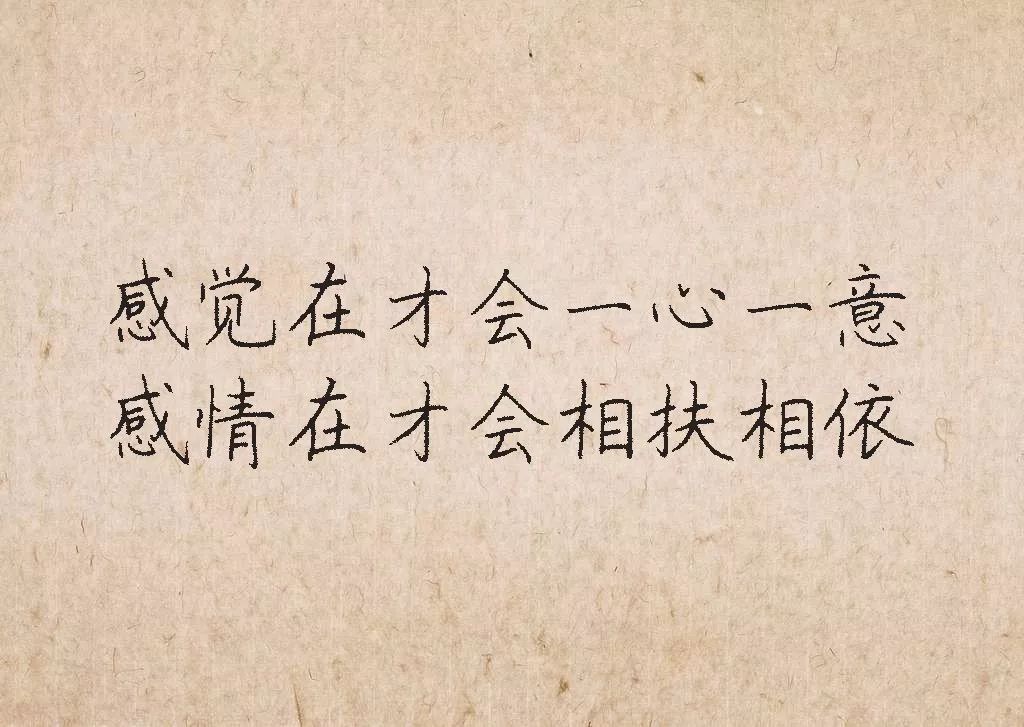 感觉在才会一心一意
感情在才会相扶相依